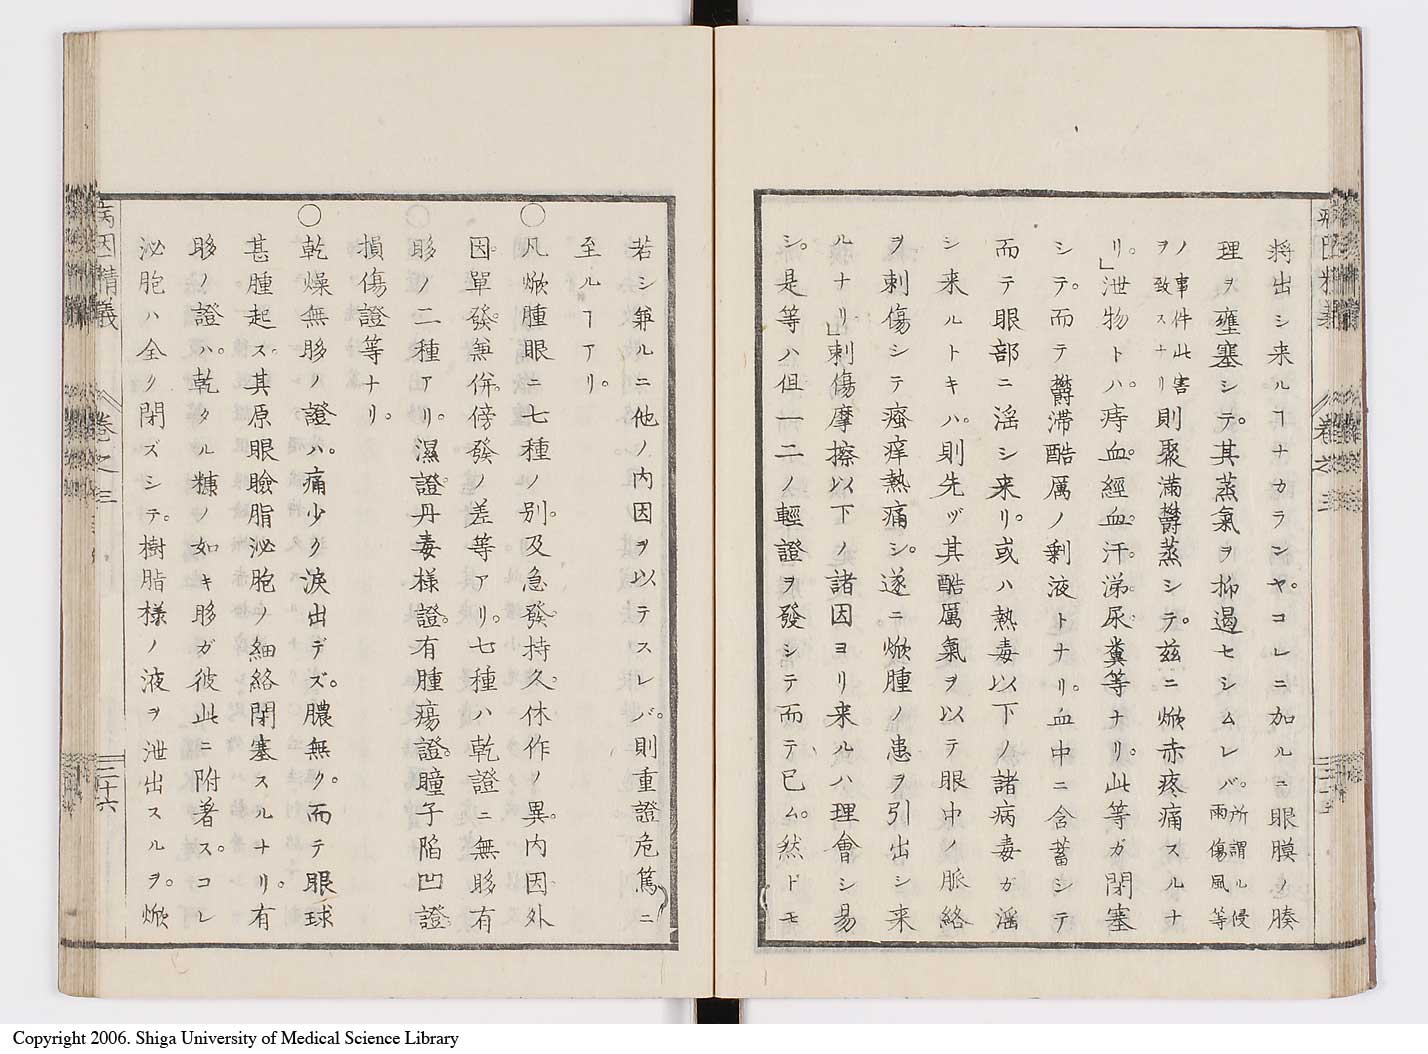 将出シ来ルヿナカランヤ。コレニ加ルニ眼膜ノ腠
理ヲ壅塞シテ。其蒸氣ヲ抑遏セシムレバ。所謂ル侵雨傷風等
ノ事件此害ヲ致スナリ則聚滿欝蒸シテ。玆ニ焮赤疼痛スルナ
リ。」泄物トハ。痔血。經血。汗。涕。尿。糞等ナリ。此等ガ閉塞
シテ。而テ欝滞酷厲ノ剰液トナリ。血中ニ含蓄シテ
而テ眼部ニ淫シ来リ。或ハ熱毒以下ノ諸病毒ガ淫
シ来ルトキハ。則先ヅ其酷厲氣ヲ以テ眼中ノ脈絡
ヲ刺傷シテ瘙痒熱痛シ。遂ニ焮腫ノ患ヲ引出シ来
ルナリ」刺傷摩擦以下ノ諸因ヨリ来ルハ理會シ易
シ。是等ハ但一二ノ輕證ヲ發シテ而テ已ム。然ドモ
若シ兼ルニ他ノ内因ヲ以テスレバ。則重證危篤ニ
至ルヿアリ。
◯凡焮腫眼ニ七種ノ別。及急發。持久。休作ノ異。内因外
因。單發。兼併。傍發ノ差等アリ。七種ハ乾證ニ無眵有
眵ノ二種アリ。濕證丹毒様證。有腫瘍證。瞳子陷凹證
損傷證等ナリ。
◯乾燥無眵ノ證ハ。痛少ク淚出デズ。膿無ク。而テ眼球
甚腫起ス。其原眼瞼脂泌胞ノ細絡閉塞スルナリ。有
眵ノ證ハ。乾タル糠ノ如キ眵ガ彼此ニ附着ス。コレ
泌胞ハ全ク閉ズシテ。樹脂様ノ液ヲ泄出スルヲ。焮
病因精義
卷之三
三十六
Copyright 2006. Shiga University of Medical Science Library